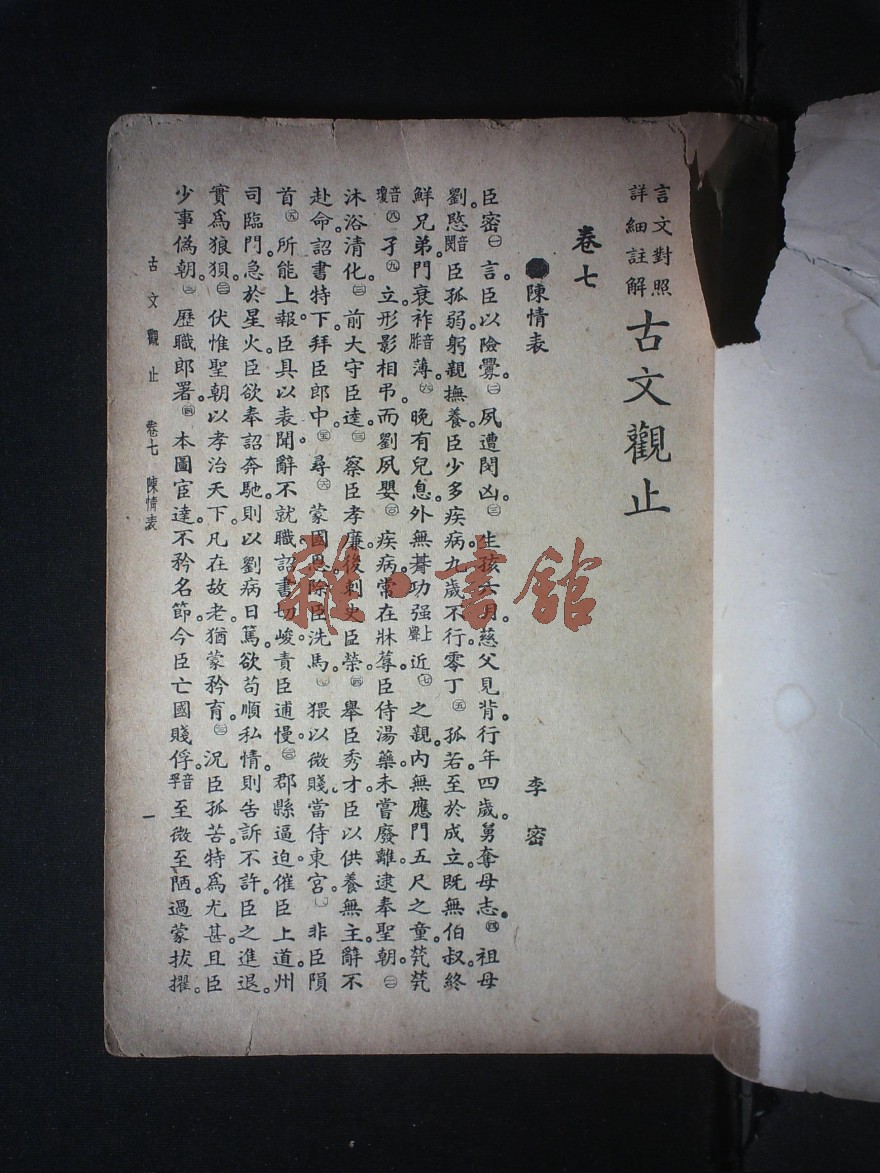 言文對照
詳細註解
古文觀止
卷七
陳情表
李密
臣密㊀言。臣以險釁。㊁夙遭閔凶。㊂生孩六月。慈父見背。行年四歲。舅奪母志。㊃祖母
劉。愍音閔臣孤弱。躬親撫養。臣少多疾病。九歲不行。零丁㊄孤若。至於成立。既無伯叔。終
鮮兄弟。門衰祚音胙薄。㊅晚有兒息。外無朞功强上聲近㊆之親。內無應門五尺之童。煢煢
音瓊㊇孑㊈立。形影相弔。而劉夙嬰㊉疾病。常在牀蓐。臣侍湯藥。未嘗廢離。逮奉聖朝。
沐浴清化。前大守臣逵。察臣孝廉。後刺史臣榮。舉臣秀才。臣以供養無主。辭不
赴命。詔書特下。拜臣郎中。尋蒙國恩。除臣洗馬。猥以微賤。當侍東宮。非臣隕
首所能上報。臣具以表聞。辭不就職。詔書切峻。責臣逋慢。郡縣逼迫。催臣上道。州
司臨門。急於星火。臣欲奉詔奔馳。則以劉病日篤。欲苟順私情。則告訴不許。臣之進退。
實爲狼狽。伏惟聖朝以孝治天下。凡在故老。猶蒙矜育。況臣孤苦。特爲尤甚。且臣
少事僞朝。歷職郎署。本圖宦達。不矜名節。今臣亡國賤俘。音孚至微至陋。過蒙拔擢。
古文觀止 卷七 陳情表 一
雜·書館